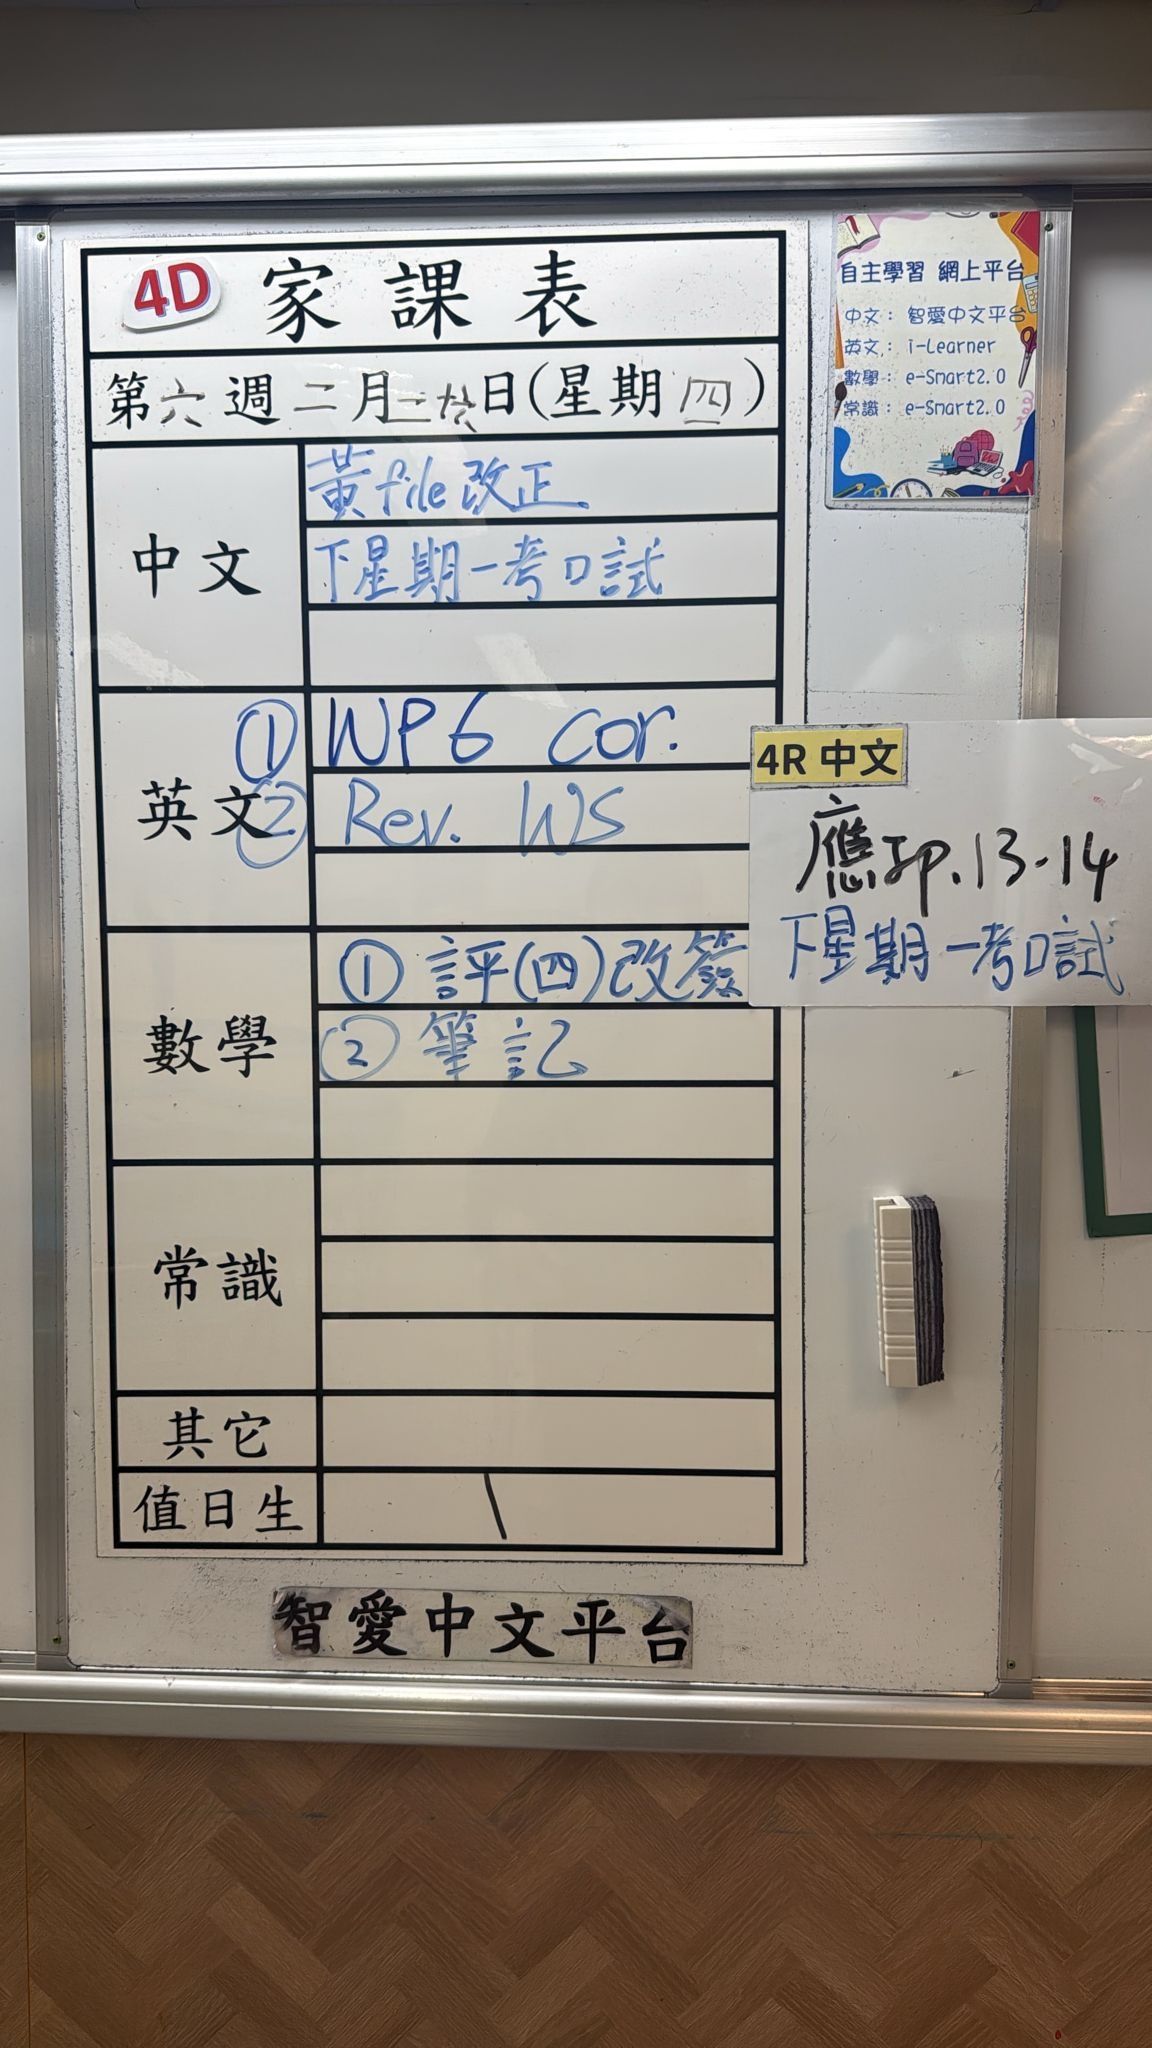 4D 家課表
第六週二月二十六日(星期四)
中文
黃file改正
下星期一考口試
英文
① WP6 cor.
② Rev. WS
數學
① 評(四)改簽
② 筆記
常識
其它
值日生
智愛中文平台
自主學習 網上平台
中文: 智愛中文平台
英文: i-Learner
數學: e-Smart2.0
常識: e-Smart2.0
4R 中文
應卬p.13-14
下星期一考口試